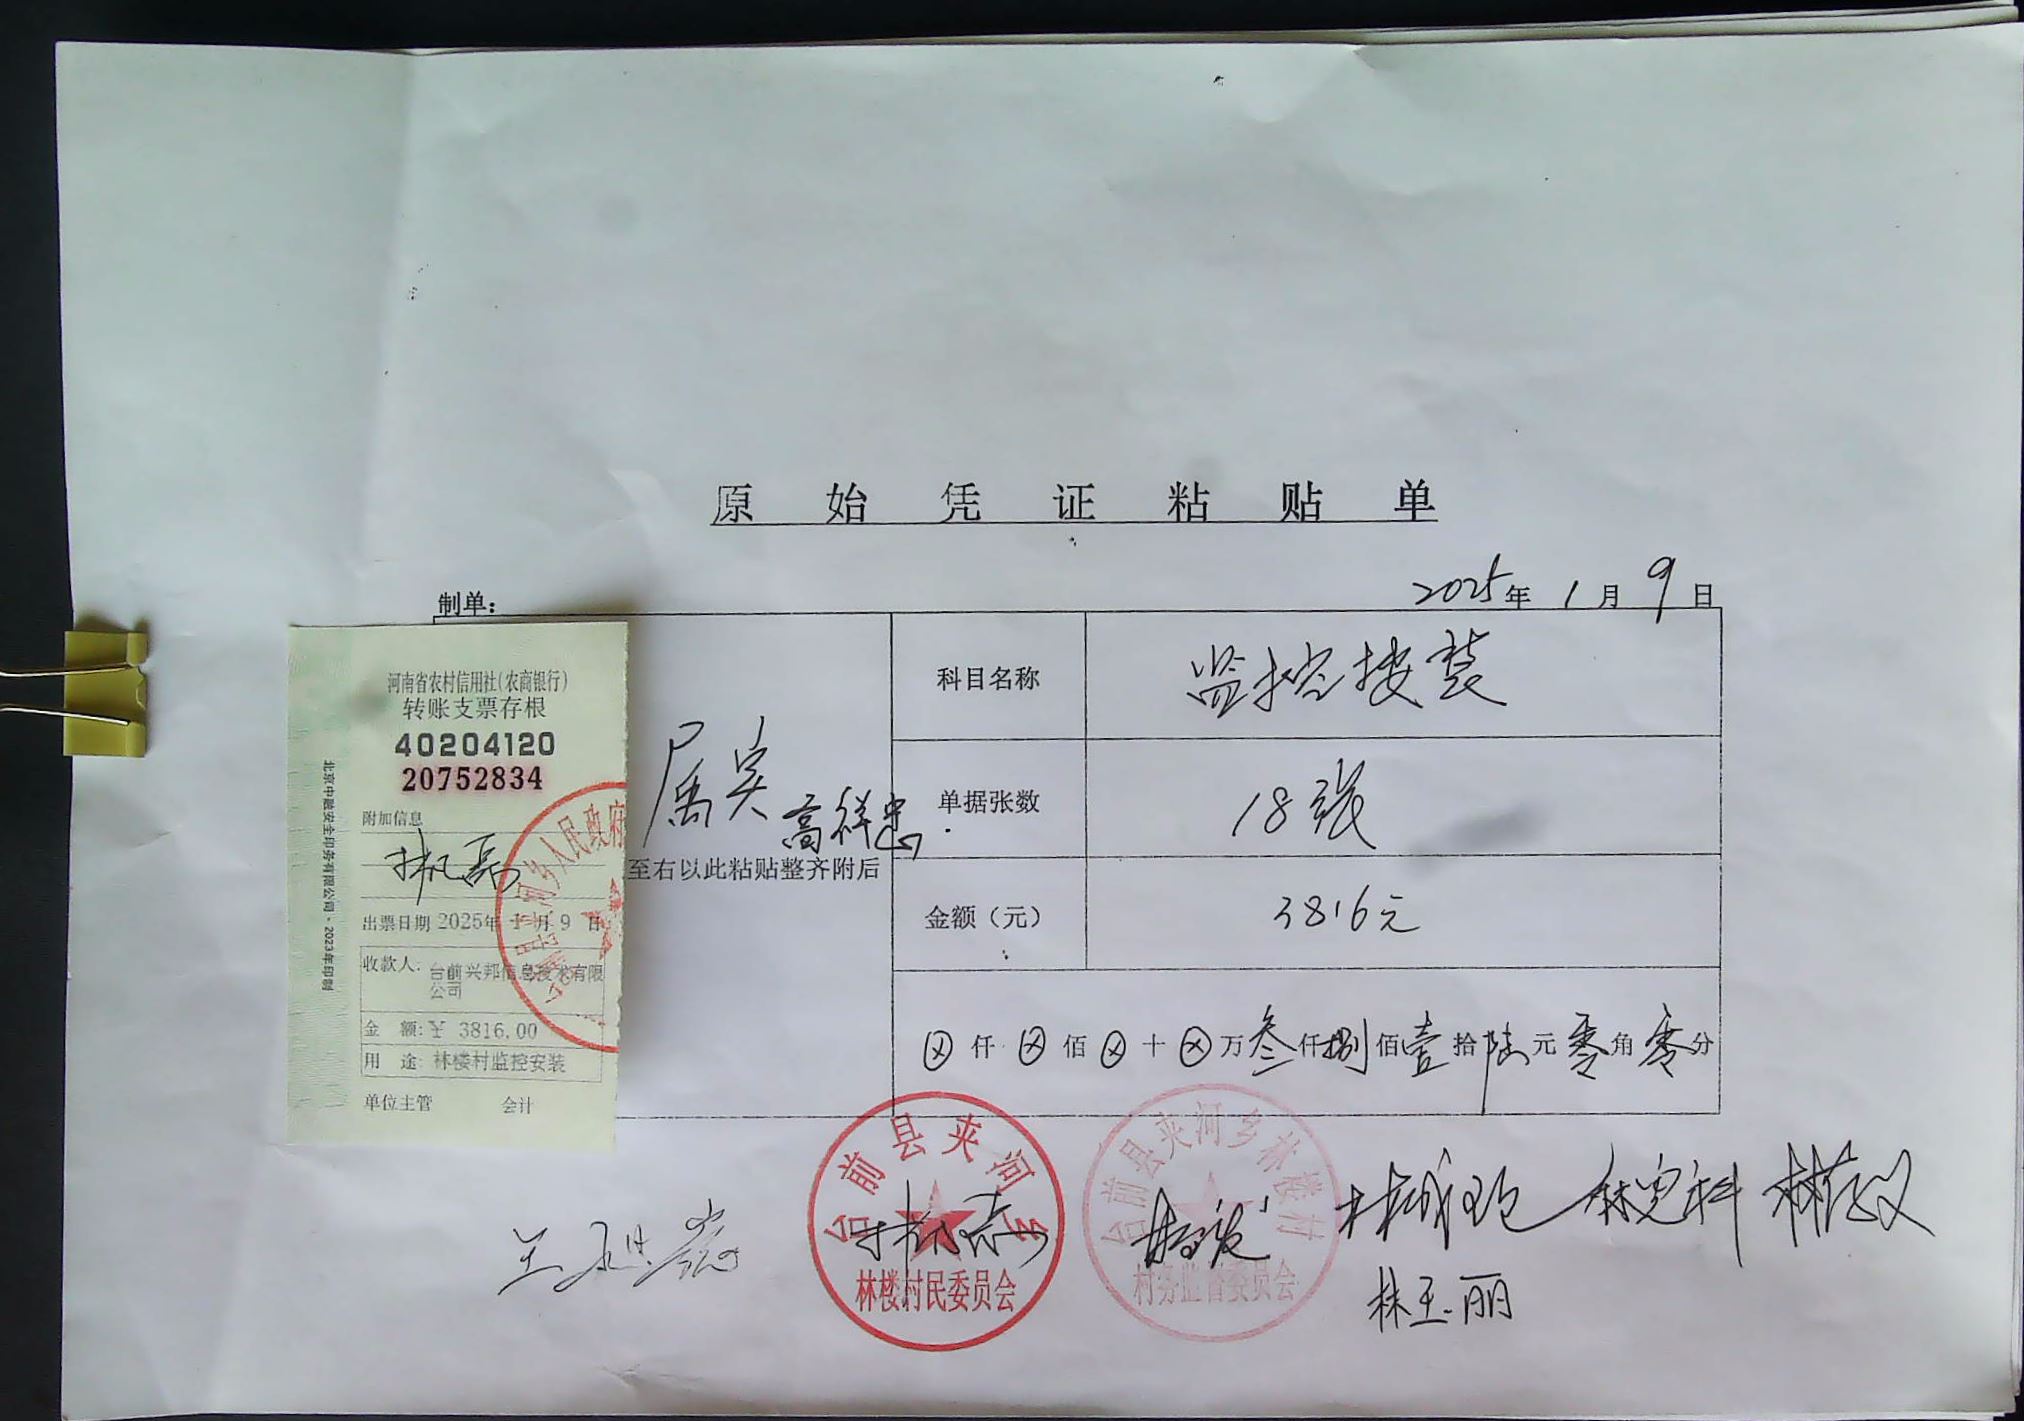 原始凭证粘贴单
制单：
2025年1月9日
河南省农村信用社（农商银行）
转账支票存根
40204120
20752834
附加信息
出票日期 2025年1月9日
收款人：台前兴邦信息技术有限
公司
金 额：¥ 3816.00
用 途：林楼村监控安装
单位主管 会计
北京中融安全印务有限公司·2023年印制
属实
高祥忠
至右以此粘贴整齐附后
科目名称 监控按装
单据张数 18张
金额（元） 3816元
⊗仟⊗佰⊗十⊗万叁仟捌佰壹拾陆元零角零分
台前县夹河乡
林楼村民委员会
台前县夹河乡林楼村
村务监督委员会
林玉丽